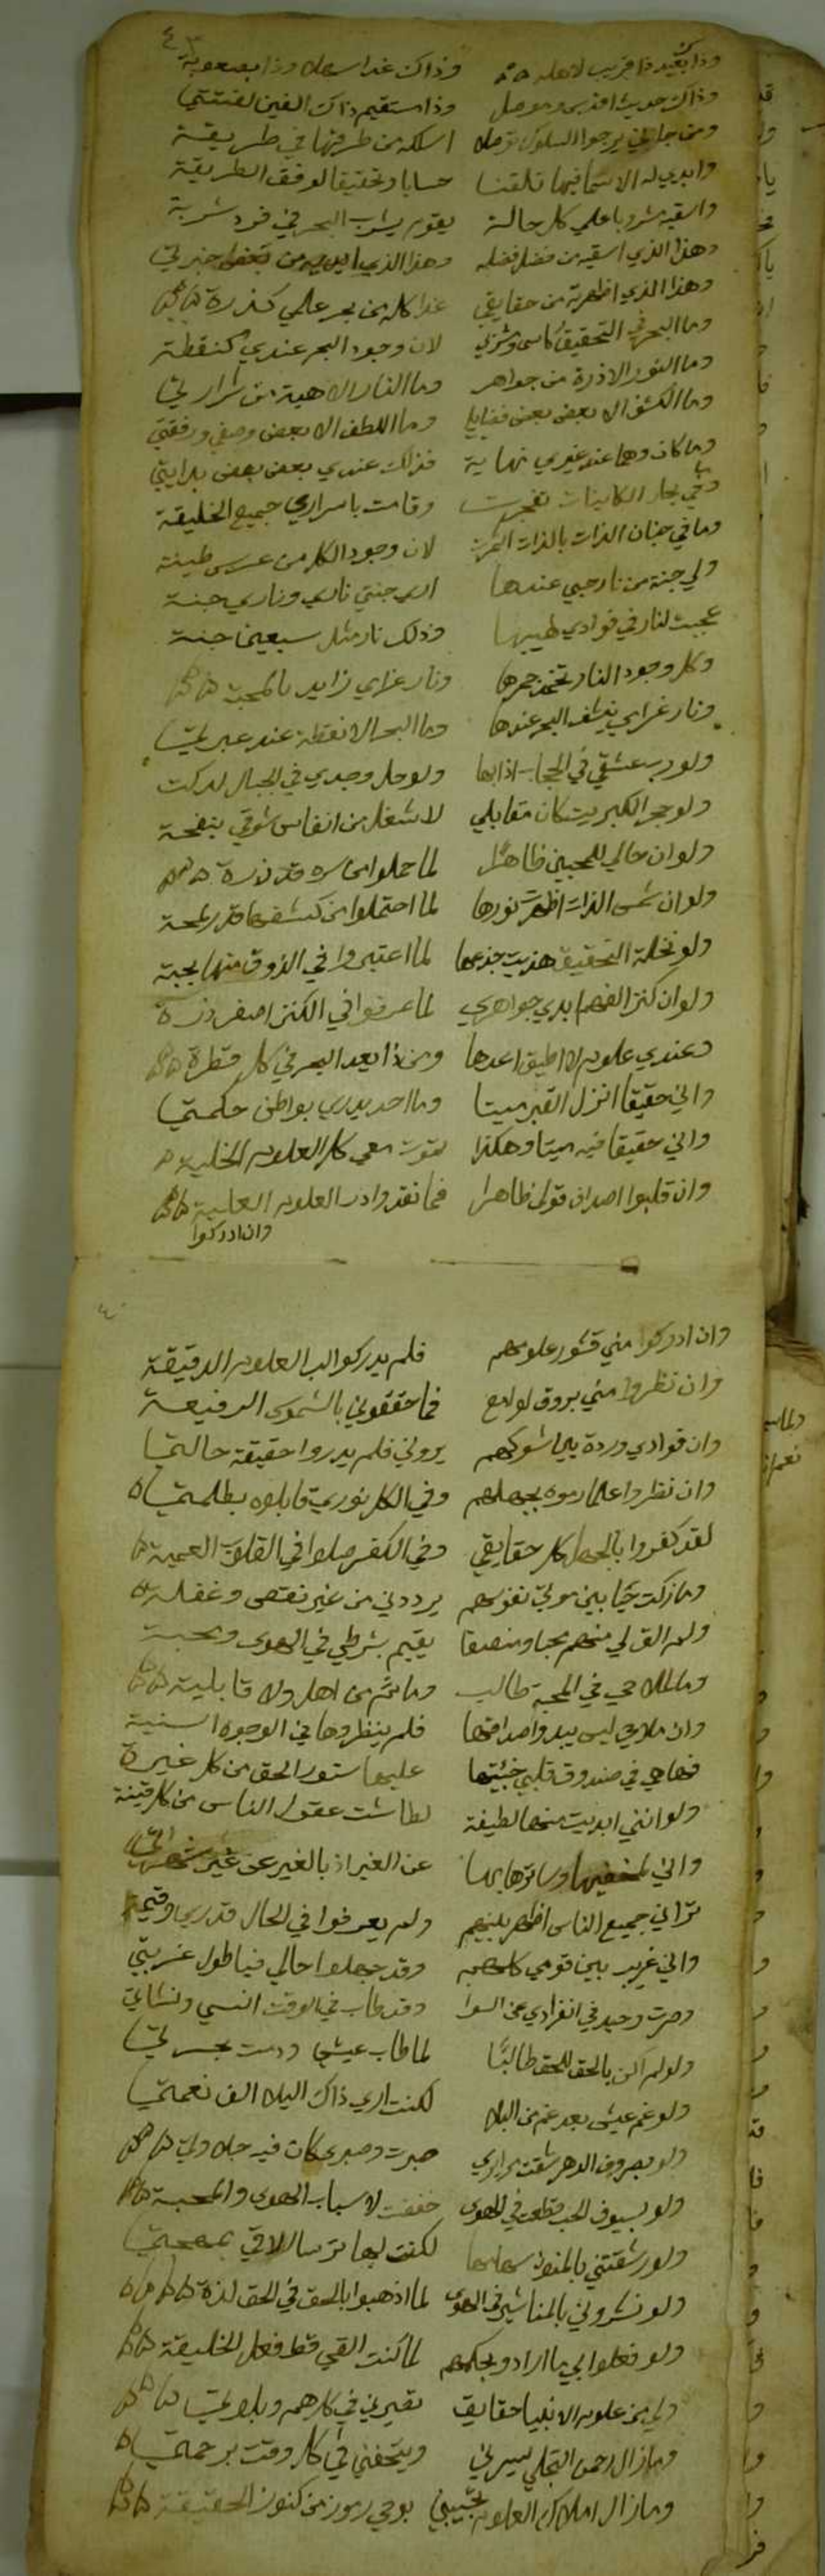 ٤٣
وذا بعيد ذا قريب لاهله وذاك غدا سهلا وذا بصعوبة
وذاك حديث اقدس وموصل وذا مستقيم ذاك الفين لفتنتي
ومن جاءني يرجوا السلوك توصلا اسلكه من طرفتها في طريقة
وابدي له الاسما فيها تلقنا حسابا وتحقيقا لوفق الطريقة
واسقيه مشروبا علي كل حالة يقوم بشرب البحر في فرد شربة
وهذا الذي اسقيه من فضل فضله وهذا الذي ابديه من بعض خبرتي
وهذا الذي اظهرته من حقايقي غدا كله من بحر علمي كذرة
وما البحر في التحقيق كاسي وشربي لان وجود البحر عندي كنقطة
وما النور الا ذرة من جواهر وما النار الا هبة من شرارتي
وما الكشف الا بعض بعض فضايلي وما اللطف الا بعض وصفي ورفقتي
وما كان وهما عند غيري نهاية فذلك عندي بعض بعض بدايتي
وفي بحار الكاينات تفجرت وقامت باسراري جميع الخليقة
وما في جنان الذات بالذات اثمرت لان وجود الكل من غرس طينة
ولي جنة من نار حبي عندها اري جنتي ناري وناري جنة
عجبت لنار في فوادي لهيبها وذلك نار مثل سبعين جنة
وكل وجود النار تخمد جمرها ونار غرامي زايد بالمحبة
ونار غرامي ينشف البحر عندها وما البحر الا نقطة عند عبرتي
ولو دب عشقي في الحجار اذابها ولو حل وجدي في الجبال لدكت
ولو حجر الكبريت كان مقابلي لاشغل من انفاس شوقي بنفحة
ولو ان حالي للمحبين ظاهرا لما حملوا قدر ذرة
ولو ان شمس الذات اظهرت نورها لما احتملوا من كشفها قدر لمحة
ولو نخلة التحقيق هزيت جذعها لما اعتبروا في الذوق منها بحبة
ولو ان كنز الفهم ابدي جواهري لما عرفوا في الكنز اصغر ذرة
وعندي علوم لا اطيق اعدها ومن ذا يعد البحر في كل قطرة
واني حقيقا انزل القبر ميتا وما احد يدري بواطن حكمتي
واني حقيقا فيه ميتا وهكذا تموت معي كل العلوم الخفية
وان قلبوا اصداف قولي ظاهرا فما نقدوا در العلوم العلية
وان ادركوا
وان ادركوا مني قشور علومهم فلم يدركوا لب العلوم الدقيقة
وان نظروا مني بروق لوامع فما حققوني بالشموس الرفيعة
وان فوادي وردة بين شوكهم يروني فلم يدروا حقيقة حالتي
وان نظروا علما رموه بجهلهم وفي الكل نوري قابلوه بظلمتي
لقد كفروا بالجهل كل حقايقي وفي الكفر ضلوا في القلوب العمية
وما زلت حيا بين موتي نفوسهم يرددني من غير نقص وغفلة
ولم الق لي منهم محبا ومنصفا يقيم بشرطي في الهوي ومحبة
وما للملاحي في المحبة طالب وما ثم من اهل ولا قابلية
وان ملاحي ليس يبدوا صداقها فلم ينظروها في الوجوه السنية
فها هي في صندوق قلبي خبيتها عليها ستور الحق من كل غيرة
ولو انني ابديت منها لطيفة لطاشت عقول الناس من كل قينة
واني لمخفيها وساترها بها عن الغير اذ بالغير عن غير
تراني جميع الناس اظهر بينهم ولم يعرفوا في الحال قدري وقيمة
واني غريب بين قومي كلهم وقد جهلوا حالي فيا طول غربتي
وصرت وحيد في انفرادي عن السوا وقد طاب في الوقت انسي ونشاتي
ولو لم اكن بالحق للحق طالبا لما طاب عيشي ودمت بحسرتي
ولو غم عيشي بعد غم من البلا لكنت اري ذاك البلا الف نعمتي
ولو بصروف الدهر شقت مرايري صبرت وصبري كان فيه حلاوتي
ولو بسيوف الحب قطعت في الهوي خضعت لاسباب الهوي والمحبة
ولو رشقتني بالمنون سهامها لكنت لها ترسا الاقي بمهجتي
ولو نشروني بالمناشير في الهوي لما اذهبوا بالحق في الحق لذة
ولو فعلوا بي ما ارادو بحكمهم لما كنت القي قط فعل الخليقة
ولي من علوم الانبيا حقايق في كل هم وبلوتي
وما زال رحمن التجلي يسرني ويتحفني في كل وقت برحمتي
وما زال املاك العلوم تجيبني بوحي رموز من كنوز الحقيقة